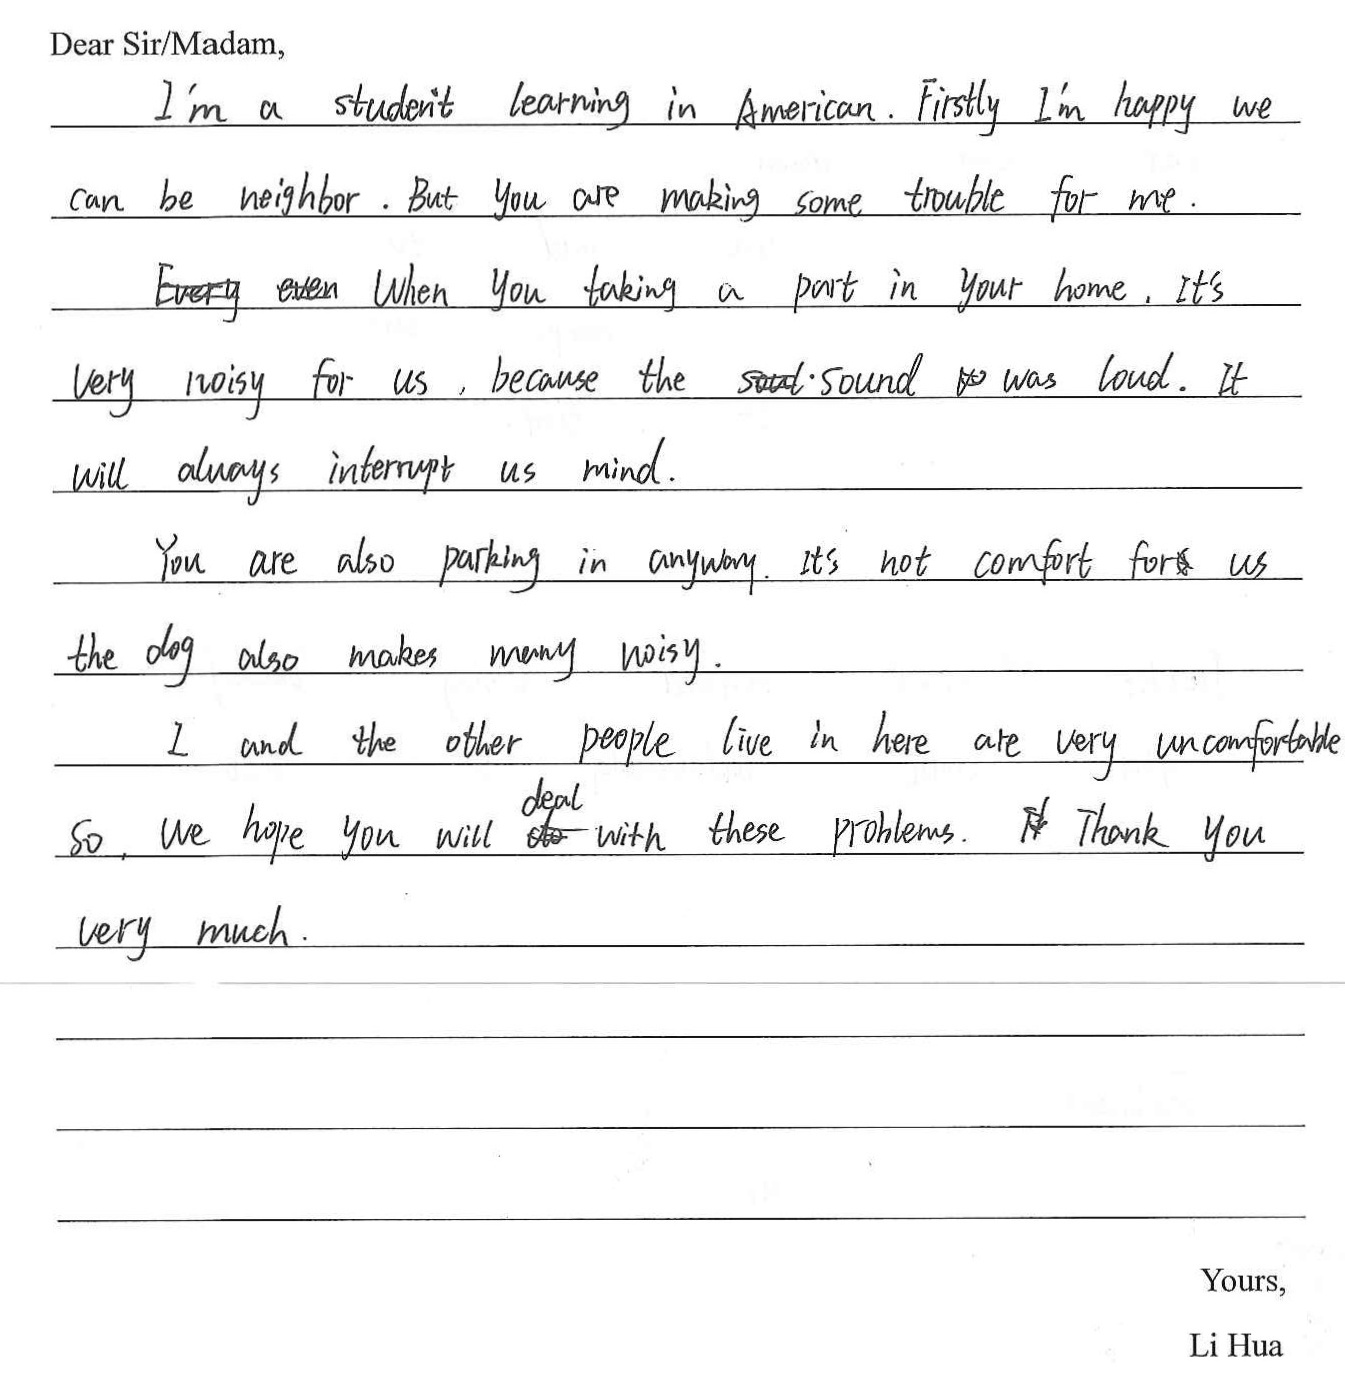 Dear Sir/Madam,
I'm a student learning in American. Firstly I'm happy we
can be neighbor. But you are making some trouble for me.
Every even When you taking a part in your home. It's
very noisy for us, because the sound was loud. It
will always interrupt us mind.
You are also parking in anyway. It's not comfort for us
the dog also makes many noisy.
I and the other people live in here are very uncomfortable
So, we hope you will deal with these problems. Thank you
very much.
Yours,
Li Hua